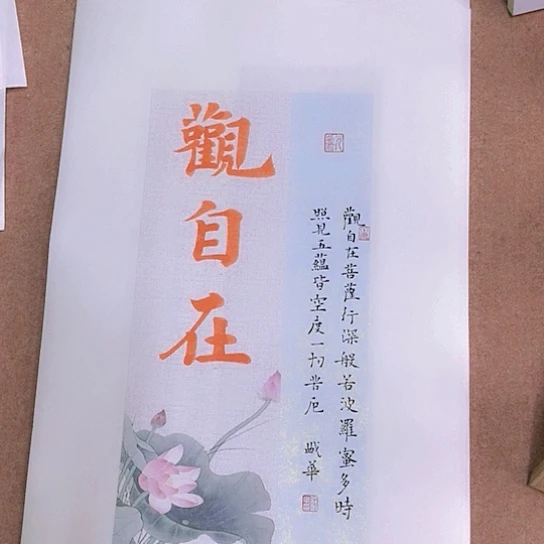 觀自在
觀自在菩薩行深般若波羅蜜多時
照見五蘊皆空度一切苦厄